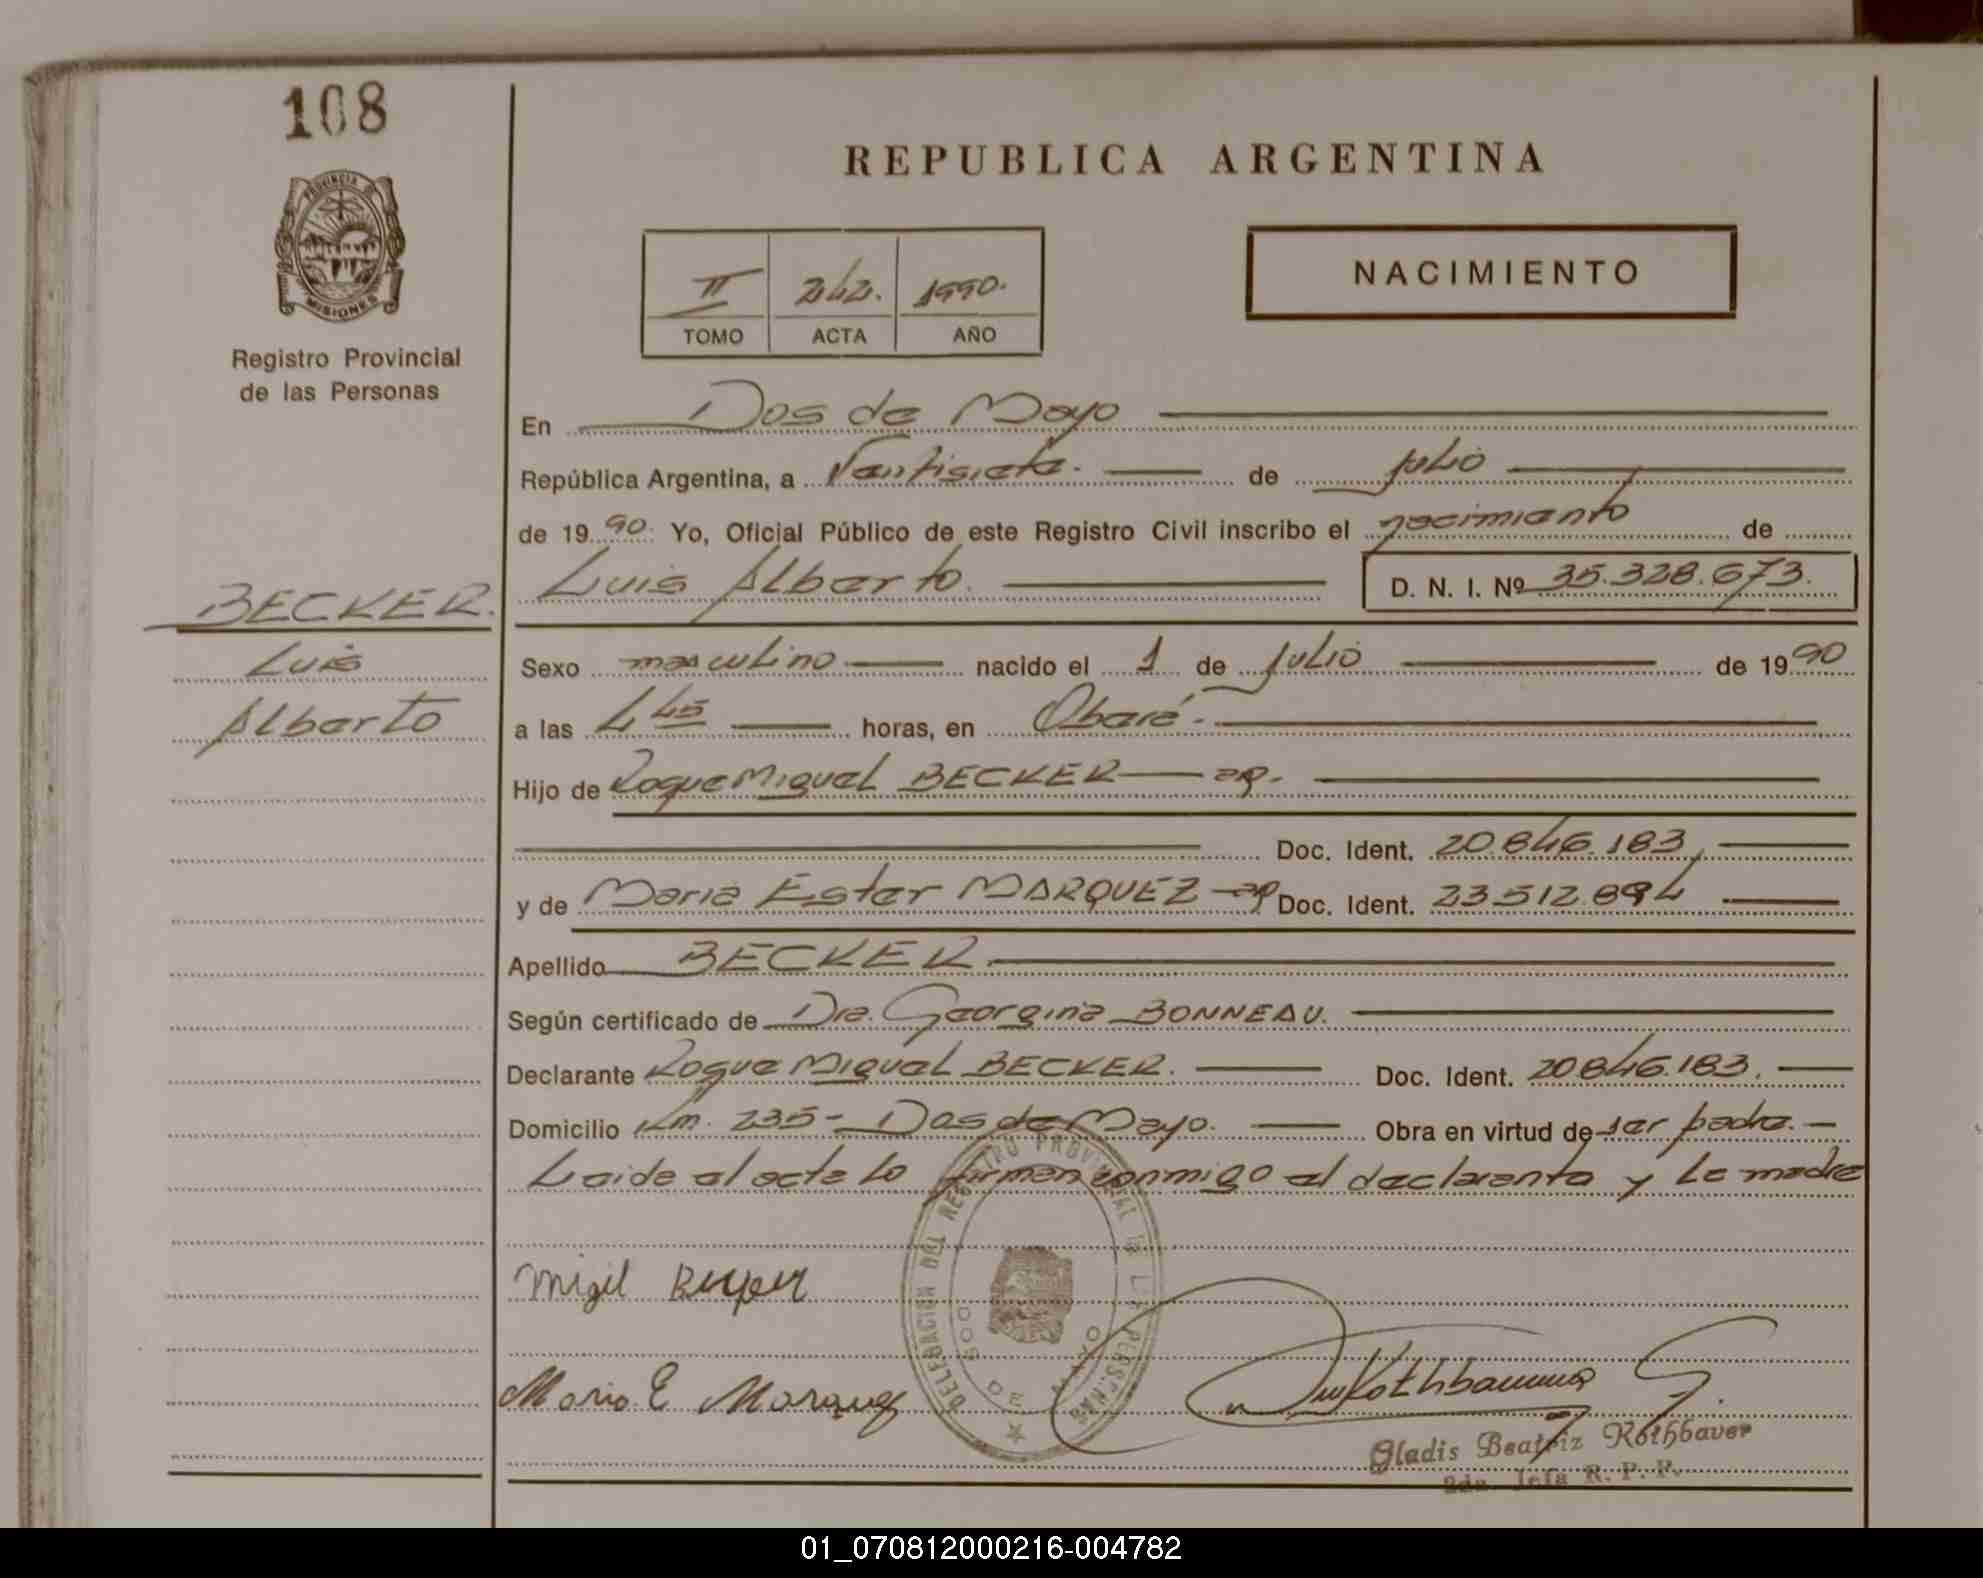 108
REPUBLICA ARGENTINA
PROVINCIA DE
MISIONES
Registro Provincial
de las Personas
II 242. 1990.
TOMO ACTA AÑO
NACIMIENTO
En Dos de Mayo
República Argentina, a Ventisiete. de julio
de 1990. Yo, Oficial Público de este Registro Civil inscribo el nacimiento de
BECKER. Luis Alberto. D. N. I. Nº 35.328.673.
Luis Sexo masculino nacido el 1 de julio de 1990
Alberto a las 4 45 horas, en Oberá.
Hijo de Roque Miguel BECKER - ap.
Doc. Ident. 20.846.183,
y de Maria Ester MARQUEZ - ap Doc. Ident. 23.512.894
Apellido BECKER.
Según certificado de Dra. Georgina BONNEAU.
Declarante Roque Miguel BECKER. Doc. Ident. 20846183.
Domicilio Km. 235 - Dos de Mayo. Obra en virtud de ser padre.
Leide el acta lo firman conmigo el declarante y la madre
DELEGACION DEL REGISTRO PROVINCIAL DE LAS PERSONAS
DOS DE MAYO
Migel
Maria E Marquez
Gladis Beatriz Rothbauer
2da. Jefa R. P. P.
01_070812000216-004782